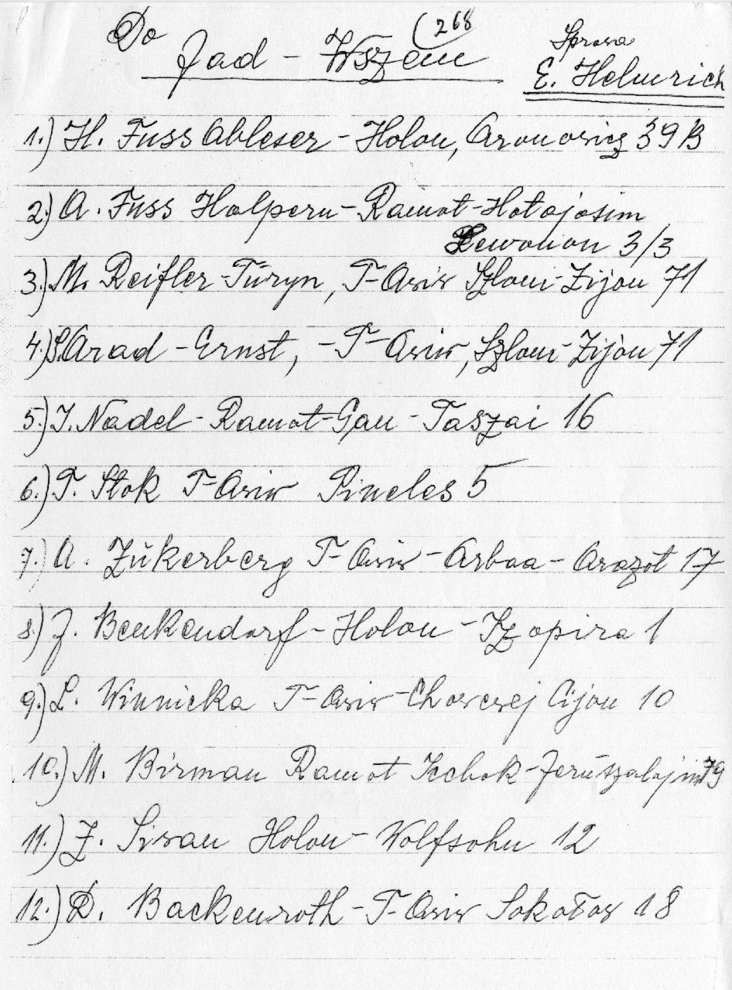 (268
Do Jad - Wszem
Sprawa
E. Helmrich
1.) H. Fuss Ableser - Holon, Aronowicz 39 B
2.) A. Fuss Halpern - Ramat - Hatajasim
3/3
3.) M. Reifler-Türyn, T-Awiw Szlom-Zijon 71
4.) S. Arad - Ernst, - T-Awiw, Szlom-Zijon 71
5.) I. Nadel - Ramat-Gan - Taszai 16
6.) T. Stok T-Awiw Pineles 5
7.) A. Zükerberg T-Awiw - Arbaa - Arazot 17
8.) J. Benkendorf - Holon - Szapira 1
9.) L. Winnicka T-Awiw - Chowewej Cijon 10
10.) M. Birman Ramat Icchok - Jerüszalajim 79
11.) Z. Siwan Holon - Wolfsohn 12
12.) D. Backenroth - T-Awiw Sokołow 18